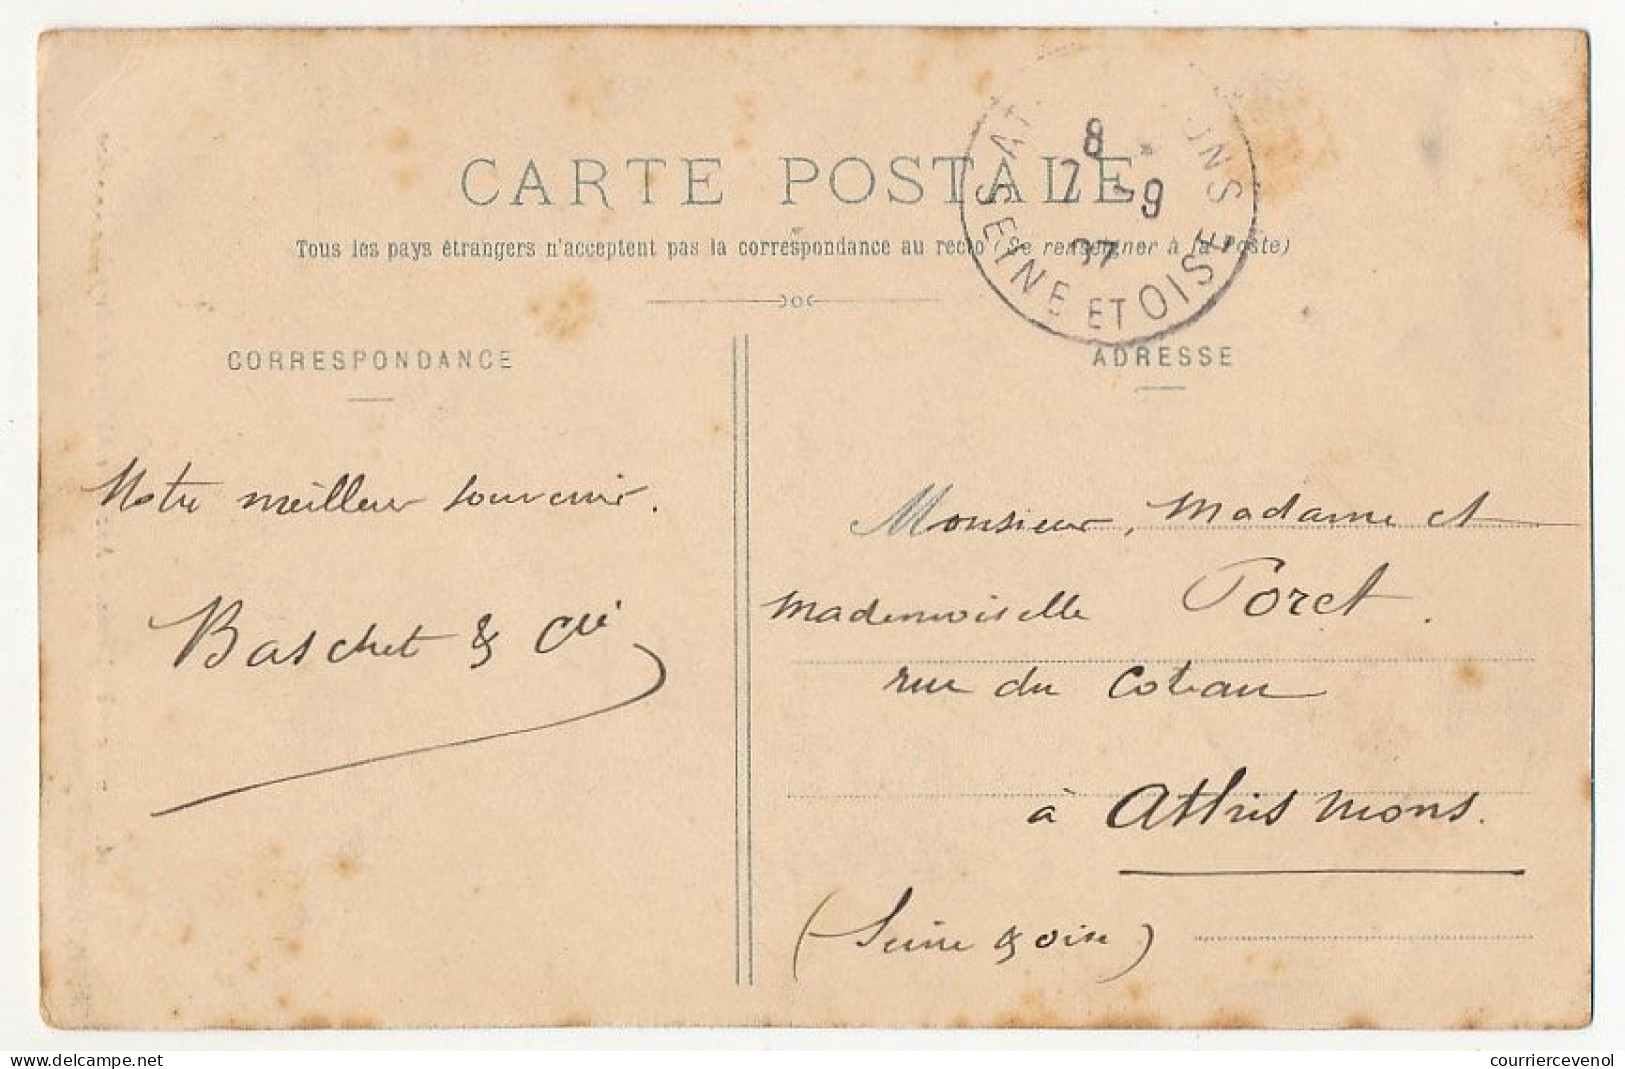 CARTE POSTALE
Tous les pays étrangers n'acceptent pas la correspondance au recto (Se renseigner à la Poste)
8
7 -9
07
SEINE ET OISE
CORRESPONDANCE
ADRESSE
Notre meilleur souvenir.
Baschet & Cie
Monsieur, Madame et
Mademoiselle Poret.
rue du Coteau
à Athis Mons.
(Seine & Oise)
courriercevenol